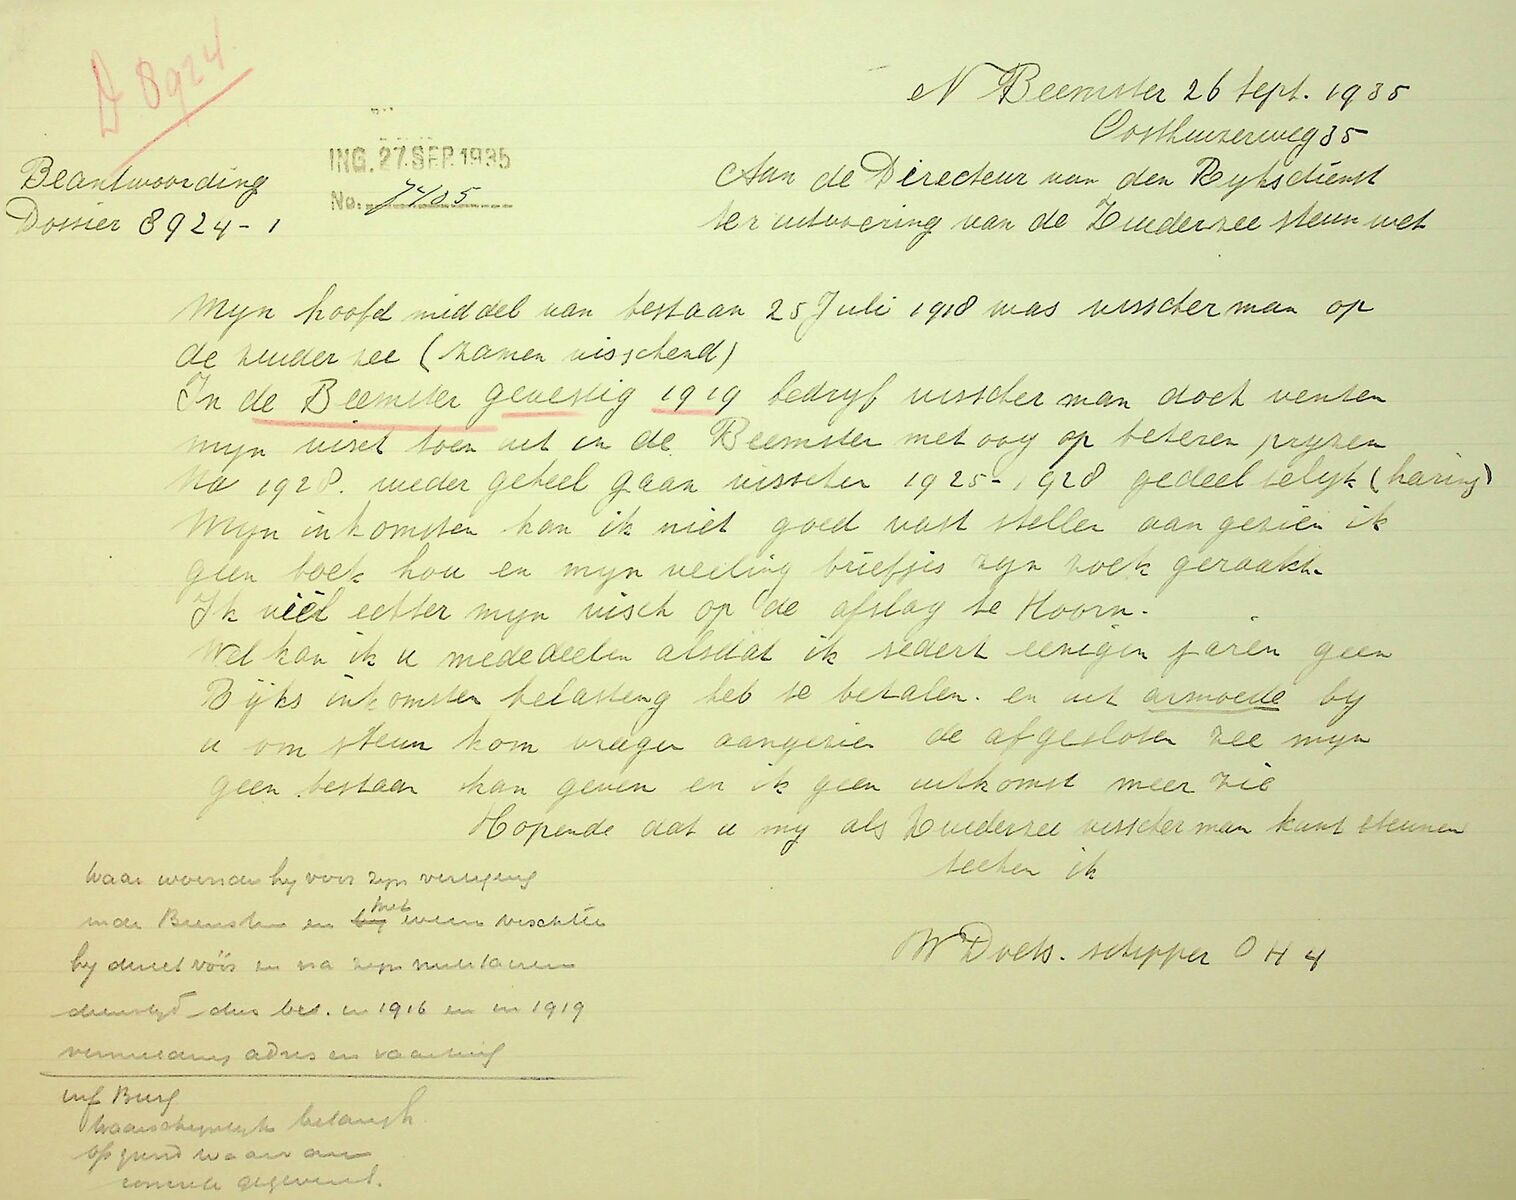 D 8924.
N Beemster 26 Sept. 1935
Oosthuizerweg 35
ING. 27. SEP. 1935
No. 7485
Beantwoording
Dossier 8924-1
Aan de Directeur van den Ryksdienst
ter uitvoering van de Zuiderzee steun wet
Myn hoofd middel van bestaan 25 Juli 1918 was visscher man op
de zuider zee (zamen visschend)
In de Beemster gevestig 1919 bedryf visscher man doch venten
myn visch toen uit in de Beemster met oog op beteren pryzen
Na 1928. weder geheel gaan visschen 1925-1928 gedeeltelyk (haring)
Myn inkomsten kan ik niet goed vast stellen aan gezien ik
geen boek hou en myn veeling briefjes zyn zoek geraakt.
Ik viel echter myn visch op de afslag te Hoorn.
Wel kan ik u mededeelen alsdat ik sedert eenigen jaren geen
Rijks inkomsten belasteng heb te betalen. en uit armoede by
u om steun kom vragen aangezien de afgesloten zee myn
geen bestaan kan geven en ik geen uitkomst meer zie
Hopende dat u my als Zuiderzee visscher man kunt steunen
teeken ik
W Doets. schipper O H 4
Waar woonde hy voor zyn vestiging
in de Beemster en by met wien vischte
hy direct vóór en na zyn militairen
diensttyd dus bes. in 1916 en in 1919
vermelding adres en vaartuig
inf Burg
Waarschynlyk belangh.
op grond waarvan